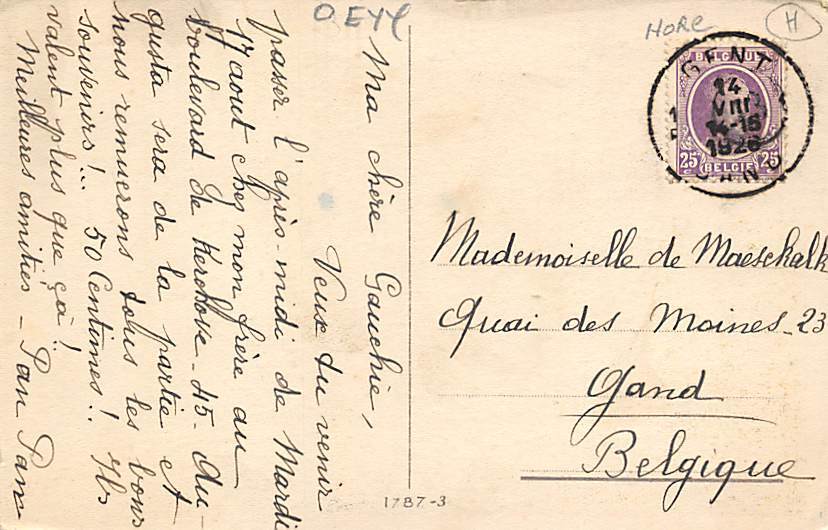 O.EYL
HORE
H
BELGIQUE
GENT
14
VIII
14-15
1926
GAND
25 25
BELGIE
Ma chère Gauchie,
Veux tu venir
passer l'après-midi de Mardi
17 aout chez mon frère au
boulevard de Kerchove - 45. Au-
gusta sera de la partie et
nous remuerons tous les bons
souvenirs!.. 50 Centimes!. Ils
valent plus que ça!
Meilleures amitiés - Pan Pan
Mademoiselle de Maesckalk
Quai des Moines - 23
Gand
Belgique
1787-3